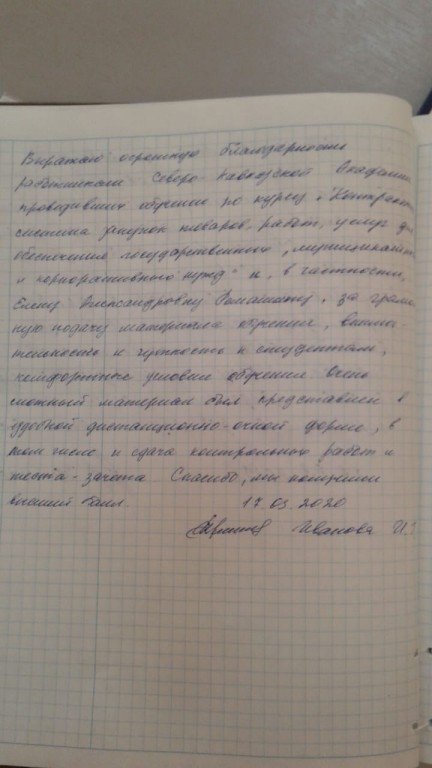 Выражаю огромную благодарность
работникам Северо-Кавказской Академии
проводивших обучение по курсу "Контрактная
система закупок товаров, работ, услуг для
обеспечения государственных, муниципальных
и корпоративных нужд" и, в частности,
Елену Александровну Ромашкину, за грамот-
ную подачу материала обучения, внима-
тельность и чуткость к студентам,
комфортные условия обучения. Очень
сложный материал был представлен в
удобной дистанционно-очной форме, в
том числе и сдача контрольных работ и
теста-зачета. Спасибо, мы получили
высший балл.
17.03.2020
Иванова И.